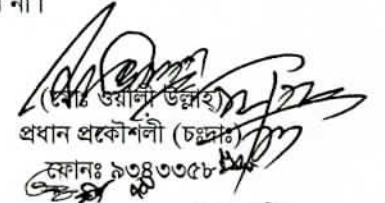 না।
(মোঃ ওয়ালী উল্লাহ)
প্রধান প্রকৌশলী (চঃদাঃ)
ফোনঃ ৯৩৪৩৩৫৮